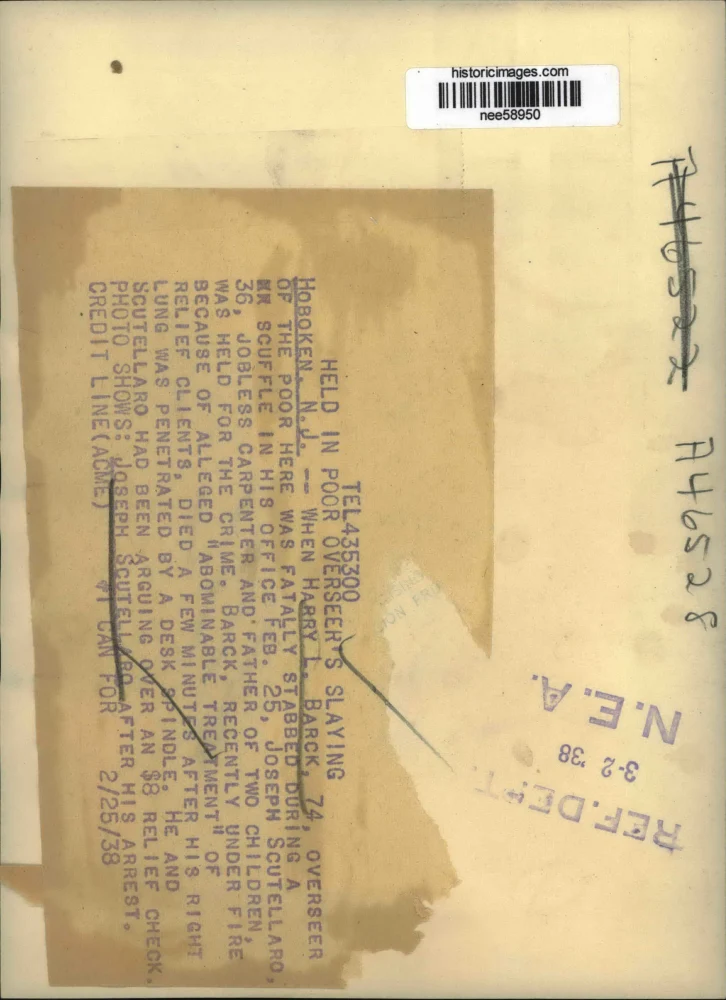 historicimages.com
nee58950
A46522
A46528
REF.DEPT.
3-2 '38
N.E.A.
TEL435300
HELD IN POOR OVERSEER'S SLAYING
HOBOKEN, N.J. -- WHEN HARRY L. BARCK, 74, OVERSEER
OF THE POOR HERE WAS FATALLY STABBED DURING A
SCUFFLE IN HIS OFFICE FEB. 25, JOSEPH SCUTELLARO,
36, JOBLESS CARPENTER AND FATHER OF TWO CHILDREN,
WAS HELD FOR THE CRIME. BARCK, RECENTLY UNDER FIRE
BECAUSE OF ALLEGED "ABOMINABLE TREATMENT" OF
RELIEF CLIENTS, DIED A FEW MINUTES AFTER HIS RIGHT
LUNG WAS PENETRATED BY A DESK SPINDLE. HE AND
SCUTELLARO HAD BEEN ARGUING OVER AN $8 RELIEF CHECK.
PHOTO SHOWS: JOSEPH SCUTELLARO AFTER HIS ARREST.
CREDIT LINE(ACME) #1 CAN FOR 2/25/38